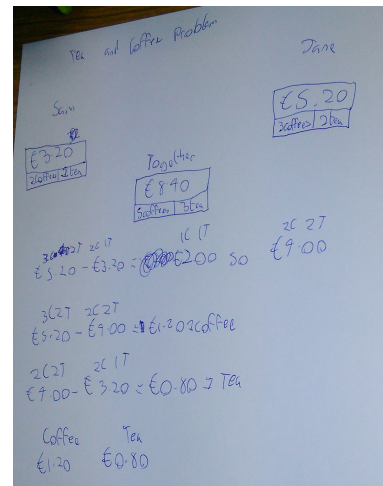 Tea and Coffee Problem
Jane
Sain
€5.20
3coffees 2tea
€3.20
2coffees 1tea
Together
€8.40
5coffees 3tea
2C 1T 1C 1T 2C 2T
€5.20 - €3.20 = €2.00 so €4.00
3C2T 2C2T
€5.20 - €4.00 = €1.20 1coffee
2C2T 2C1T
€4.00 - €3.20 = €0.80 1 Tea
Coffee Tea
€1.20 €0.80